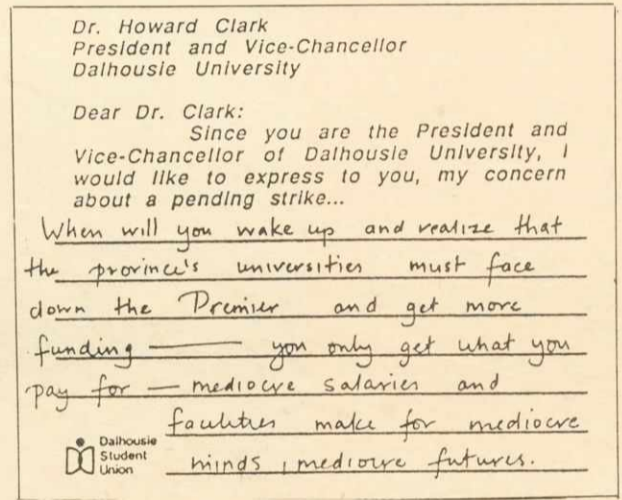 Dr. Howard Clark
President and Vice-Chancellor
Dalhousie University
Dear Dr. Clark:
Since you are the President and
Vice-Chancellor of Dalhousie University, I
would like to express to you, my concern
about a pending strike...
When will you wake up and realize that
the province's universities must face
down the Premier and get more
funding — you only get what you
pay for — mediocre salaries and
facilities make for mediocre
minds, mediocre futures.
Dalhousie
Student
Union